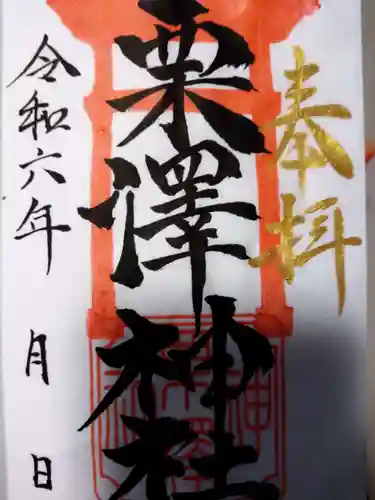 奉拝
粟澤神社
令和六年 月 日